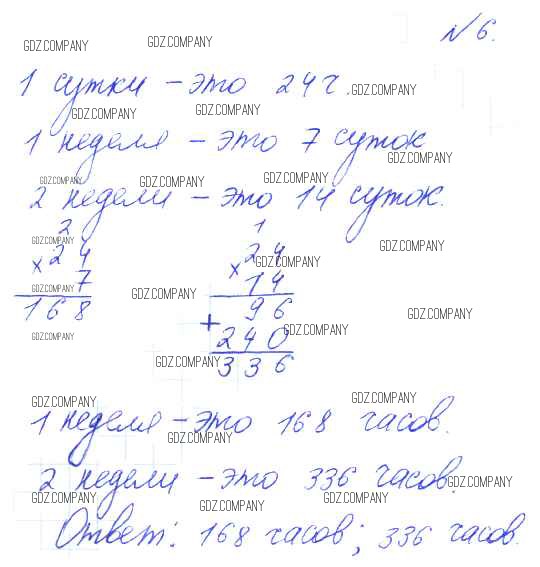 № 6.
GDZ.COMPANY GDZ.COMPANY
1 сутки – это 24 ч. GDZ.COMPANY
GDZ.COMPANY GDZ.COMPANY
1 неделя – это 7 суток
GDZ.COMPANY
GDZ.COMPANY GDZ.COMPANY GDZ.COMPANY
2 недели – это 14 суток.
2 1
GDZ.COMPANY GDZ.COMPANY
× 24 × 24
GDZ.COMPANY
7 14
GDZ.COMPANY GDZ.COMPANY
168 96
GDZ.COMPANY
+ 240
GDZ.COMPANY GDZ.COMPANY
336
GDZ.COMPANY
GDZ.COMPANY GDZ.COMPANY
1 неделя – это 168 часов.
GDZ.COMPANY
2 недели – это 336 часов.
GDZ.COMPANY
GDZ.COMPANY GDZ.COMPANY GDZ.COMPANY
Ответ: 168 часов; 336 часов.